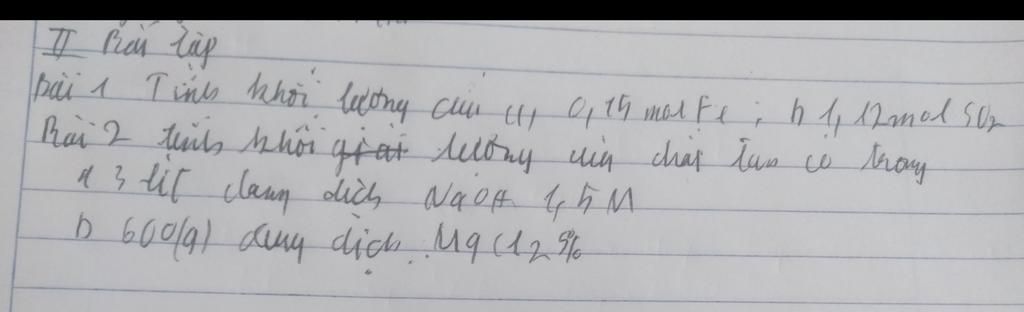 II Bài tập
Bài 1 Tính khối lượng của a, 0,15 mol Fe ; b 1,12 mol SO2
Bài 2 tính khối lượng của chất tan có trong
a 3 lít dung dịch NaOH 1,5 M
b 600(g) dung dịch MgCl2 %